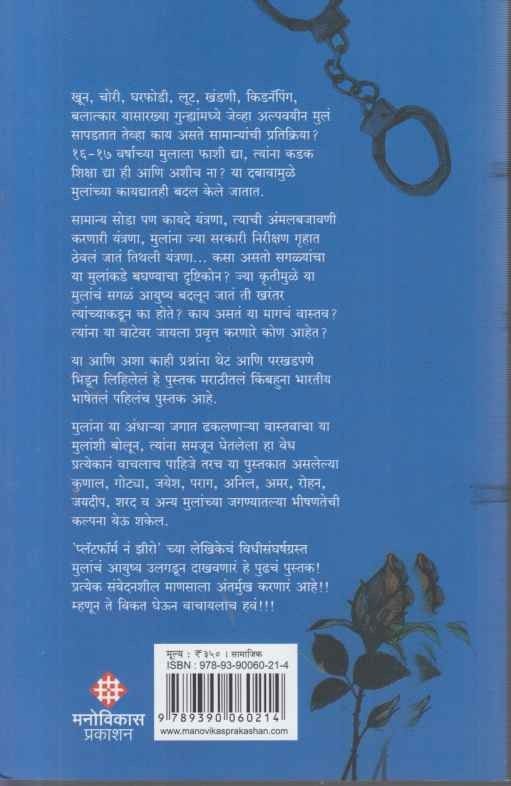 खून, चोरी, घरफोडी, लूट, खंडणी, किडनॅपिंग,
बलात्कार यासारख्या गुन्ह्यांमध्ये जेव्हा अल्पवयीन मुलं
सापडतात तेव्हा काय असते सामान्यांची प्रतिक्रिया?
१६-१७ वर्षाच्या मुलाला फाशी द्या, त्यांना कडक
शिक्षा द्या ही आणि अशीच ना? या दबावामुळे
मुलांच्या कायद्यातही बदल केले जातात.
सामान्य सोडा पण कायदे यंत्रणा, त्याची अंमलबजावणी
करणारी यंत्रणा, मुलांना ज्या सरकारी निरीक्षण गृहात
ठेवलं जातं तिथली यंत्रणा... कसा असतो सगळ्यांचा
या मुलांकडे बघण्याचा दृष्टिकोन? ज्या कृतीमुळे या
मुलांचं सगळं आयुष्य बदलून जातं ती खरंतर
त्यांच्याकडून का होते? काय असतं या मागचं वास्तव?
त्यांना या वाटेवर जायला प्रवृत्त करणारे कोण आहेत?
या आणि अशा काही प्रश्नांना थेट आणि परखडपणे
भिडून लिहिलेलं हे पुस्तक मराठीतलं किंबहुना भारतीय
भाषेतलं पहिलंच पुस्तक आहे.
मुलांना या अंधाऱ्या जगात ढकलणाऱ्या वास्तवाचा या
मुलांशी बोलून, त्यांना समजून घेतलेला हा वेध
प्रत्येकानं वाचलाच पाहिजे तरच या पुस्तकात असलेल्या
कुणाल, गोट्या, जयेश, पराग, अनिल, अमर, रोहन,
जयदीप, शरद व अन्य मुलांच्या जगण्यातल्या भीषणतेची
कल्पना येऊ शकेल.
'प्लॅटफॉर्म नं झीरो' च्या लेखिकेचं विधीसंघर्षग्रस्त
मुलांचं आयुष्य उलगडून दाखवणारं हे पुढचं पुस्तक!
प्रत्येक संवेदनशील माणसाला अंतर्मुख करणारं आहे!!
म्हणून ते विकत घेऊन वाचायलाच हवं!!!
मूल्य : ₹ ३५० । सामाजिक
ISBN : 978-93-90060-21-4
9 789390 060214
www.manovikasprakashan.com
मनोविकास
प्रकाशन